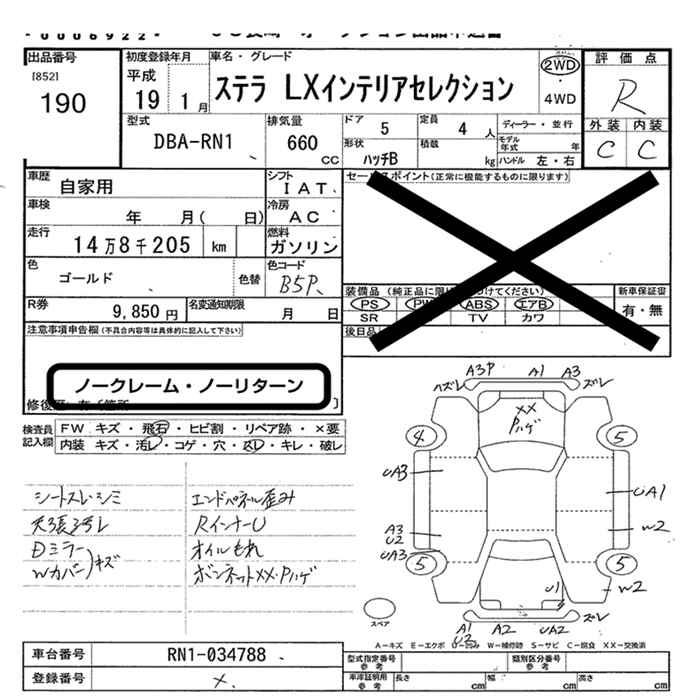 出品番号
[852]
190
初度登録年月
平成
19 1 月
車名・グレード
ステラ LXインテリアセレクション
2WD
・
4WD
評価点
R
外装 内装
C C
型式
DBA-RN1
排気量
660
CC
ドア 5
定員 4 人
ディーラー・並行
形状
ハッチB
積載 kg
モデル年式 年
ハンドル 左・右
車歴
自家用
シフト
IAT
車検
年 月( 日)
冷房
AC
走行
14万8千205 km
燃料
ガソリン
色
ゴールド
色替
色コード
B5P
R券
9,850円
名変通知期限
月 日
セールスポイント(正常に機能するものに限ります)
装備品
PS PW ABS エアB
SR TV カワ
新車保証書
有・無
後日品
注意事項申告欄(不具合内容等は具体的に記入して下さい)
ノークレーム・ノーリターン
修復歴
検査員
記入欄
FW キズ・飛石・ヒビ割・リペア跡・×要
内装 キズ・汚レ・コゲ・穴・凹レ・キレ・破レ
シートスレ・シミ
天張汚レ
Dミラー
Wカバー)キズ
エンドパネル歪み
RインナーU
オイルもれ
ボンネットXX・Pハゲ
A3P A1 A3
ズレ
XX
Pハゲ
4 5
UA3
UA1
A3
U2
W2
UA3
5 5
U1
W2
スペア
A1
U2
A2 UA2
ズレ
A-キズ E-エクボ U-凹み W-補修跡 S-サビ C-腐食 XX-交換済
車台番号
RN1-034788
登録番号
×
型式指定番号
参考
類別区分番号
参考
車庫証明用
参考
長さ cm
幅 cm
高さ cm